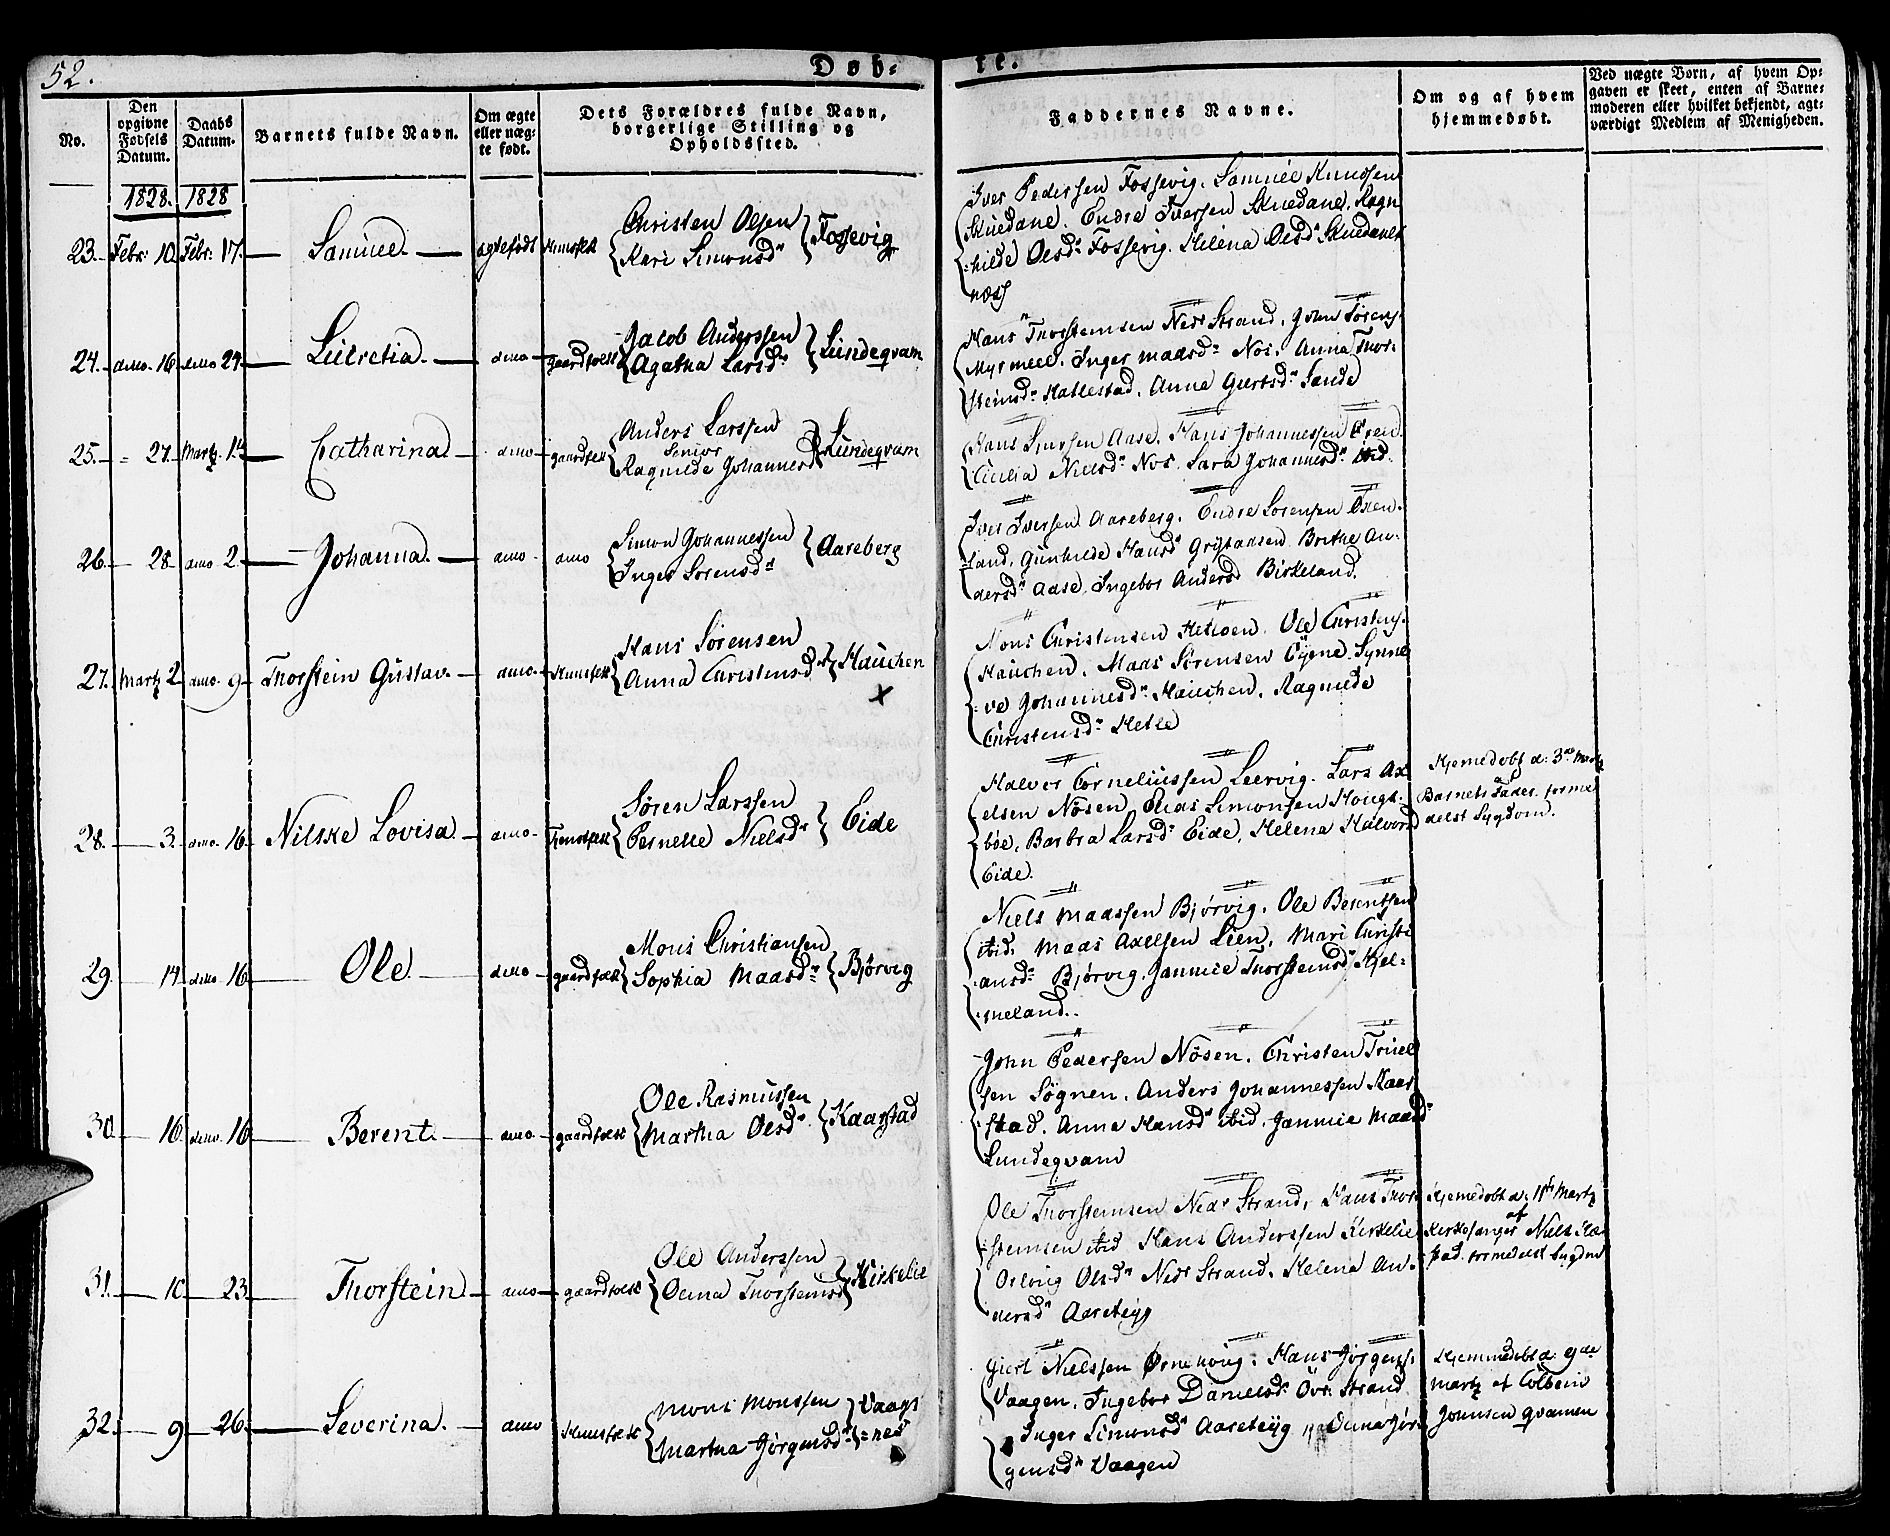 52.
Døb-
te.
No.
Den opgivne Fødsels Datum.
Daabs Datum.
Barnets fulde Navn.
Om ægte eller uæg- te født.
Dets Forældres fulde Navn, borgerlige Stilling og Opholdssted.
Faddernes Navne.
Om og af hvem hjemmedøbt.
Ved uægte Børn, af hvem Op- gaven er skeet, enten af Barne- moderen eller hvilket bekjendt, agt- værdigt Medlem af Menigheden.
1828. 1828
23. Febr: 10. Febr: 17. Samuel. ægtefødt Huusfolk Christen Olsen Kari Simonsdr Fossevig
Iver Pedersen Fossevig. Samuel Knudsen
Skuedane. Endre Iversen Skuedane. Ragn
hilde Olsdr Fossevig. Helena Olsdr Skuedane
næss
24. dmo. 16. dmo 24. Lucretia. dmo Gaardfolk Jacob Anderssen Agatha Larsdr Lundeqvam
Hans Thorstensen Nedr Strand, John Tørens.
Myrmeel. Inger Maasdr Nos. Anna Thor-
steinsdr Hallestad. Anna Giertsdr Sande
25. = 27. Martz 1te Catharina dmo gaardfolk Anders Larssen Senior Ragnilde Johannesd Lundeqvam
Hans Aase. Hans Johannessen
Cicilia Nielsdr Nos. Sara Johannesdr ibid.
26. 28. dmo 2. Johanna. dmo dmo Simon Johannessen Inger Sørensdr Aareberg
Iver Iversen Aareberg. Endre Sørensen Øren.
sand, Gunhilde Hansdr Brithe An-
dersdr Aase. Ingebor Andersd Birkeland.
27. Martz 2. dmo. 9. Thorstein Gustav. dmo. Huusfolk Hans Sørensen Anna Christensd Hauchen
x
Mons Christensen Hetleen. Ole Christens.
Hauchen. Maas Sørensen Synne
ve Johannesdr Hauchen. Ragnilde
Christensdr Hetle
28. 3. dmo. 16. Nilske Lovisa dmo Huusfolk Søren Larssen Pernelle Nielsdr Eide
Halvor Corneliussen Leervig. Lars Ax
elsen Nøsen, Elias Simonsen Hougs-
böe. Barbra Larsdr Eide, Helena Halvord
Eide.
Hjemedøbt d: 3die Martz
Barnets Fader. forme
delst Sygdom.
29. 14. dmo. 16. Ole dmo gaardfolk Mons Christiansen Sophia Maasdr Bjørvig
Niels Maassen Bjørvig. Ole Berentsen
ibid. Maas Axelsen Lien, Mari Christi
ansdr Bjørvig. Jannicie Thorsteinsdr Hjel-
meland.
30. 16. dmo. 16. Berent. dmo gaardfolk Ole Rasmussen Martha Olsdr Kaarstad
John Pedersen Nøsen. Christen Truel
sen Søgnen. Anders Johannessen Kaar
stad. Anna Hansdr ibid. Jannicie Maasdr
Lundeqvam
31. 10. 23. Thorstein dmo gaardfolk Ole Anderssen Thorsteinsd Kirkelie
Ole Thorsteinsen Nedr Strand, Hans Thor
steinsen ibid Hans Anderssen Kirkelie
Olsdr Nedr Strand. Helena An-
dersdr Aareteig
Hjemedøbt d: 11te Martz
af
Kirkesanger Niels
formedelst Sygdom
32. 9 26. Severina. dmo Huusfolk Mons Monssen Martha Jørgensdr Vaags =nes
Giert Nielssen Ørnehoug. Hans Jørgens.
Vaagen. Ingebor Danielsdr Øvr. Strand
Inger Simonsdr Aareteig Jør-
gensdr Vaagen
Hjemmedøbt d. 9de
Martz af Colbein
Johnsen Qvamen